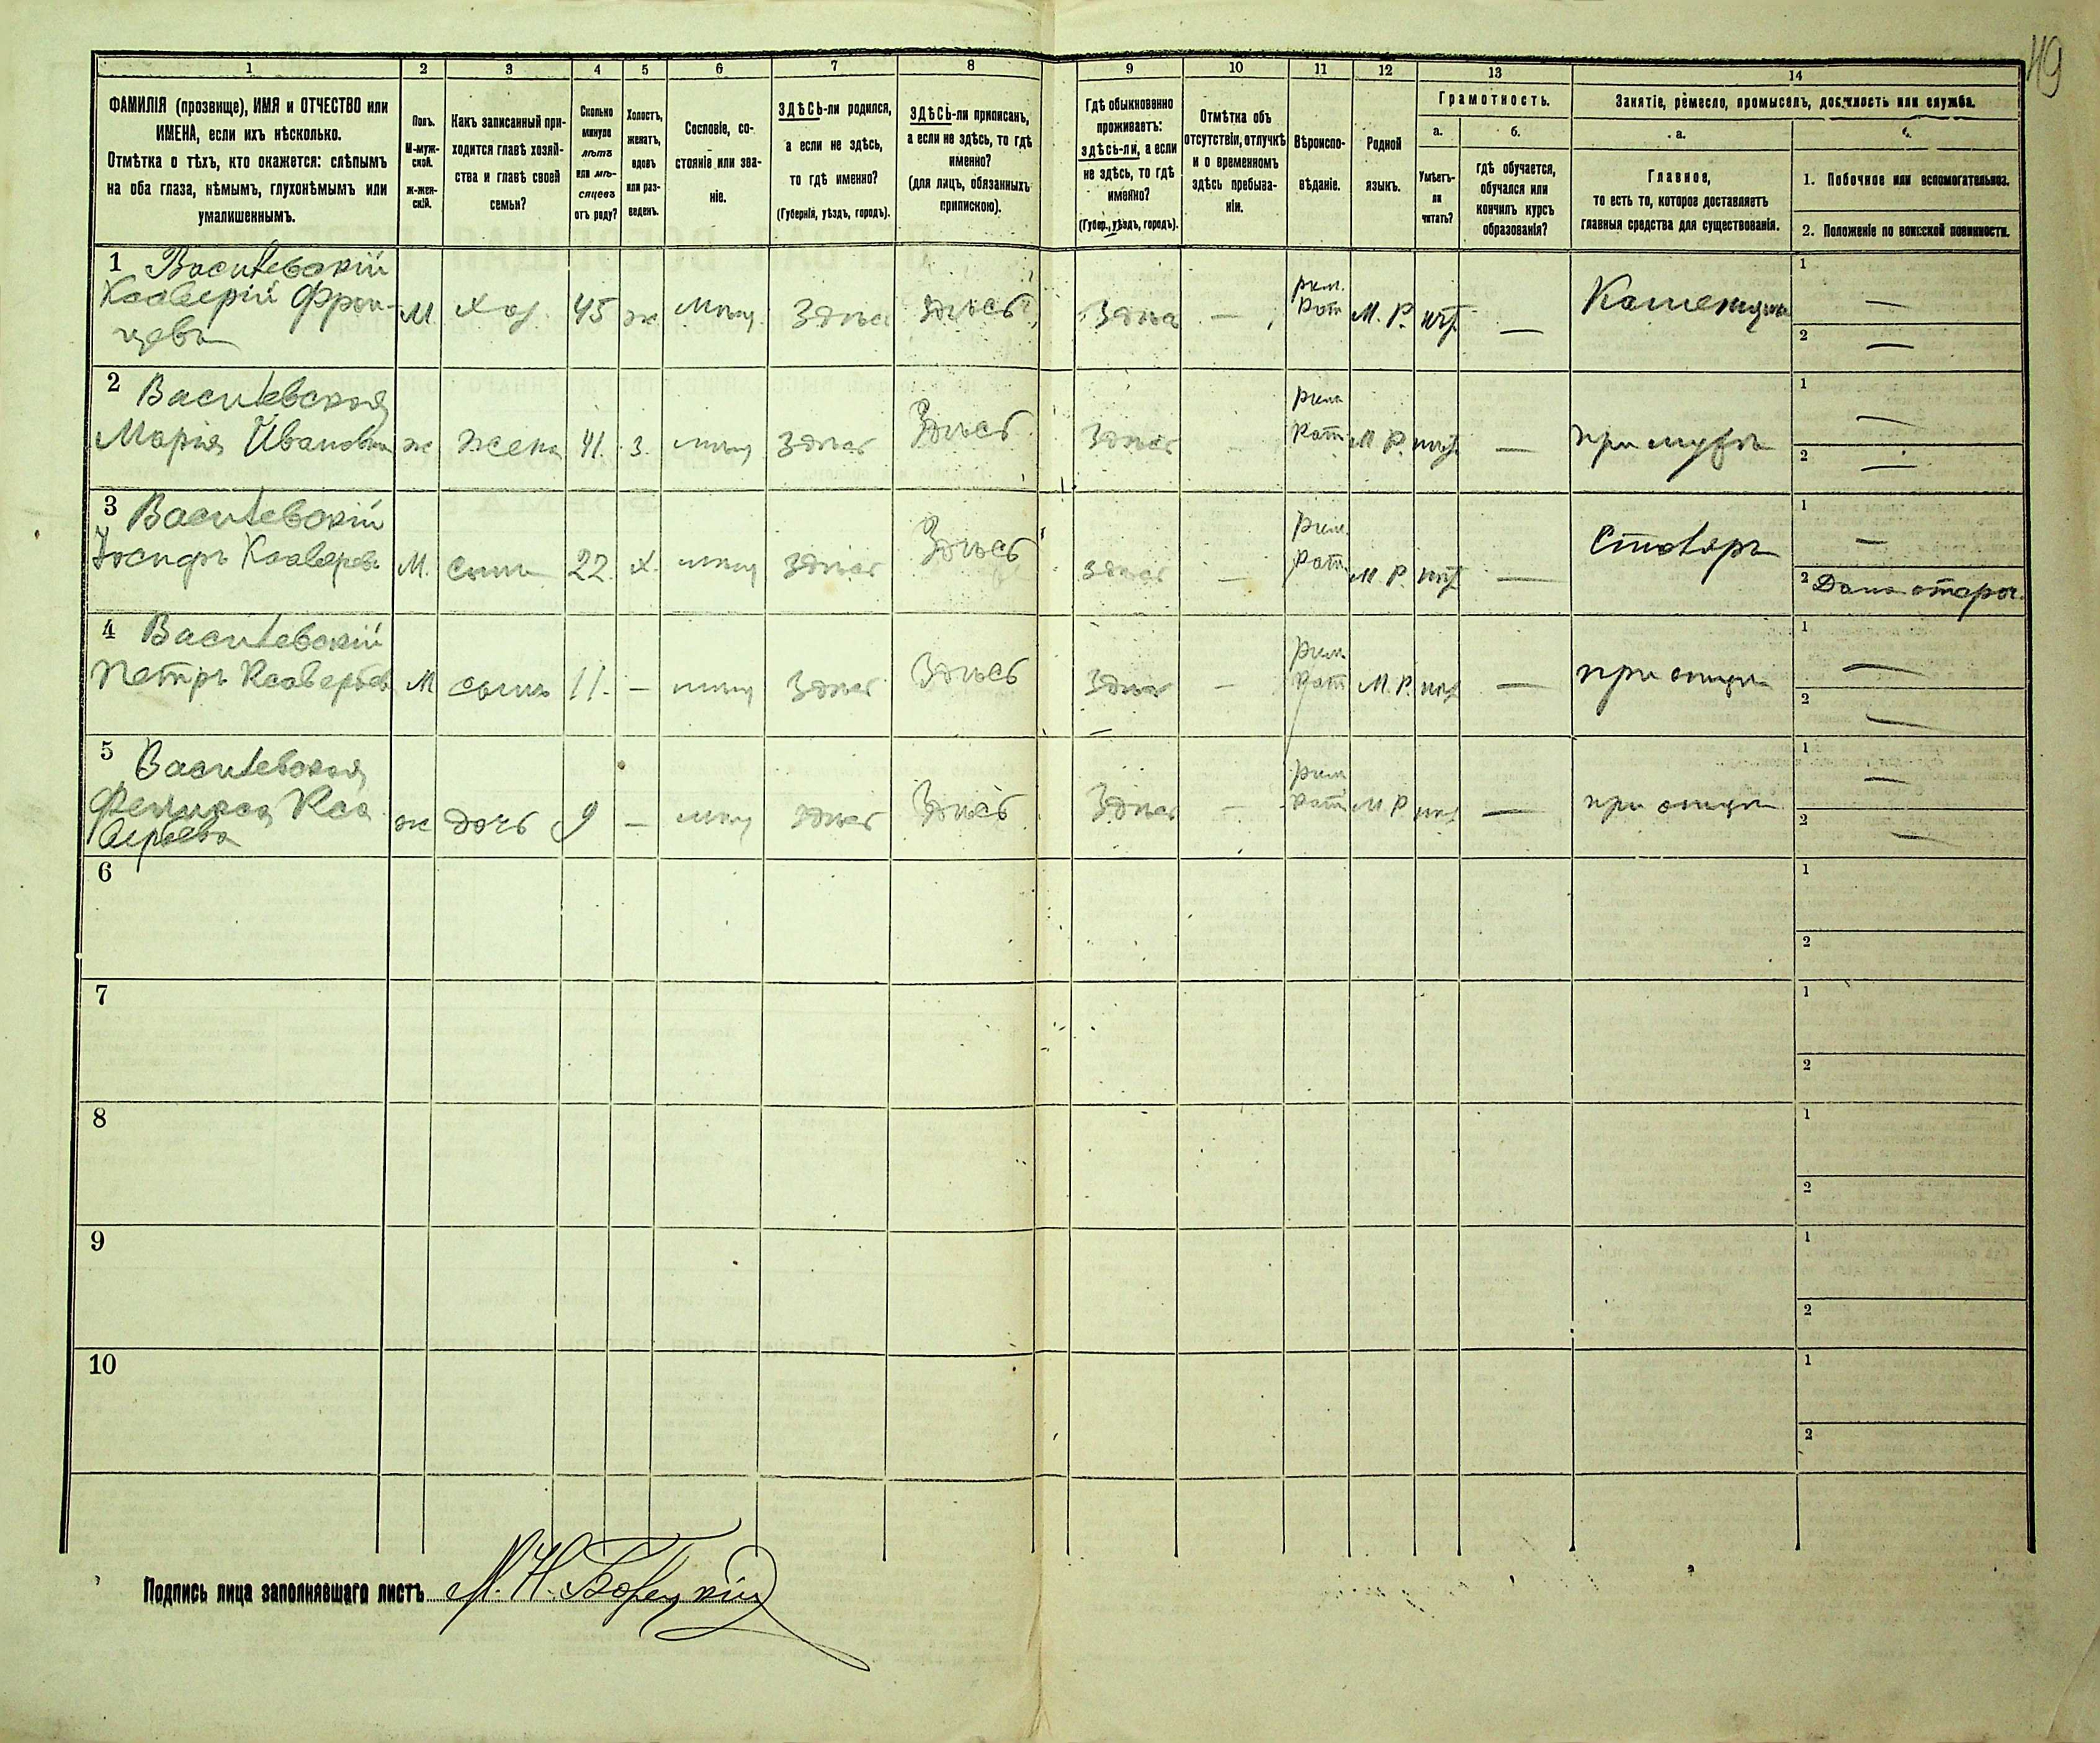 49
1 2 3 4 5 6 7 8 9 10 11 12 13 14
ФАМИЛІЯ (прозвище), ИМЯ и ОТЧЕСТВО или
ИМЕНА, если ихъ нѣсколько.
Отмѣтка о тѣхъ, кто окажется: слѣпымъ
на оба глаза, нѣмымъ, глухонѣмымъ или
умалишеннымъ.
Полъ.
М-муж-
ской.
ж-жен-
скій.
Какъ записанный при-
ходится главѣ хозяй-
ства и главѣ своей
семьи?
Сколько
минуло
лѣтъ
или мѣ-
сяцевъ
отъ роду?
Холостъ,
женатъ,
вдовъ
или раз-
веденъ.
Сословіе, со-
стояніе или зва-
ніе.
ЗДѢСЬ-ли родился,
а если не здѣсь,
то гдѣ именно?
(Губернія, уѣздъ, городъ).
ЗДѢСЬ-ли приписанъ,
а если не здѣсь, то гдѣ
именно?
(для лицъ, обязанныхъ
припискою).
Гдѣ обыкновенно
проживаетъ:
здѣсь-ли, а если
не здѣсь, то гдѣ
именно?
(Губер., уѣздъ, городъ).
Отмѣтка объ
отсутствіи, отлучкѣ
и о временномъ
здѣсь пребыва-
ніи.
Вѣроиспо-
вѣданіе.
Родной
языкъ.
Грамотность.
а.
Умѣетъ-
ли
читать?
б.
гдѣ обучается,
обучался или
кончилъ курсъ
образованія?
Занятіе, ремесло, промыселъ, должность или служба.
а.
Главное,
то есть то, которое доставляетъ
главныя средства для существованія.
1. Побочное или вспомогательное.
2. Положеніе по воинской повинности.
1 Василевскій
Ксаверій Фран-
цевъ
М хоз. 45 ж мѣщ. Здѣсь Здѣсь Здѣсь — рим. кат М. Р. нѣт — Каменщикъ 1 — 2 —
2 Василевская
Марія Ивановна ж жена 41. з. мѣщ Здѣсь Здѣсь Здѣсь — рим кат М. Р. нѣт — при мужѣ 1 — 2 —
3 Василевскій
Іосифъ Ксаверьевъ М. сынъ 22. х. мѣщ Здѣсь Здѣсь здѣсь — рим кат М. Р. нѣт — Столяръ 1 — 2 Дана отсроч.
4 Василевскій
Петръ Ксаверьевъ М сынъ 11. — мѣщ Здѣсь Здѣсь Здѣсь — рим кат М. Р. нѣт — при отцѣ 1 — 2 —
5 Василевская
Феликса Кса
верьева ж дочь 9 — мѣщ здѣсь Здѣсь Здѣсь — рим кат М Р нѣт — при отцѣ 1 — 2 —
6 1 2
7 1 2
8 1 2
9 1 2
10 1 2
Подпись лица заполнявшаго листъ